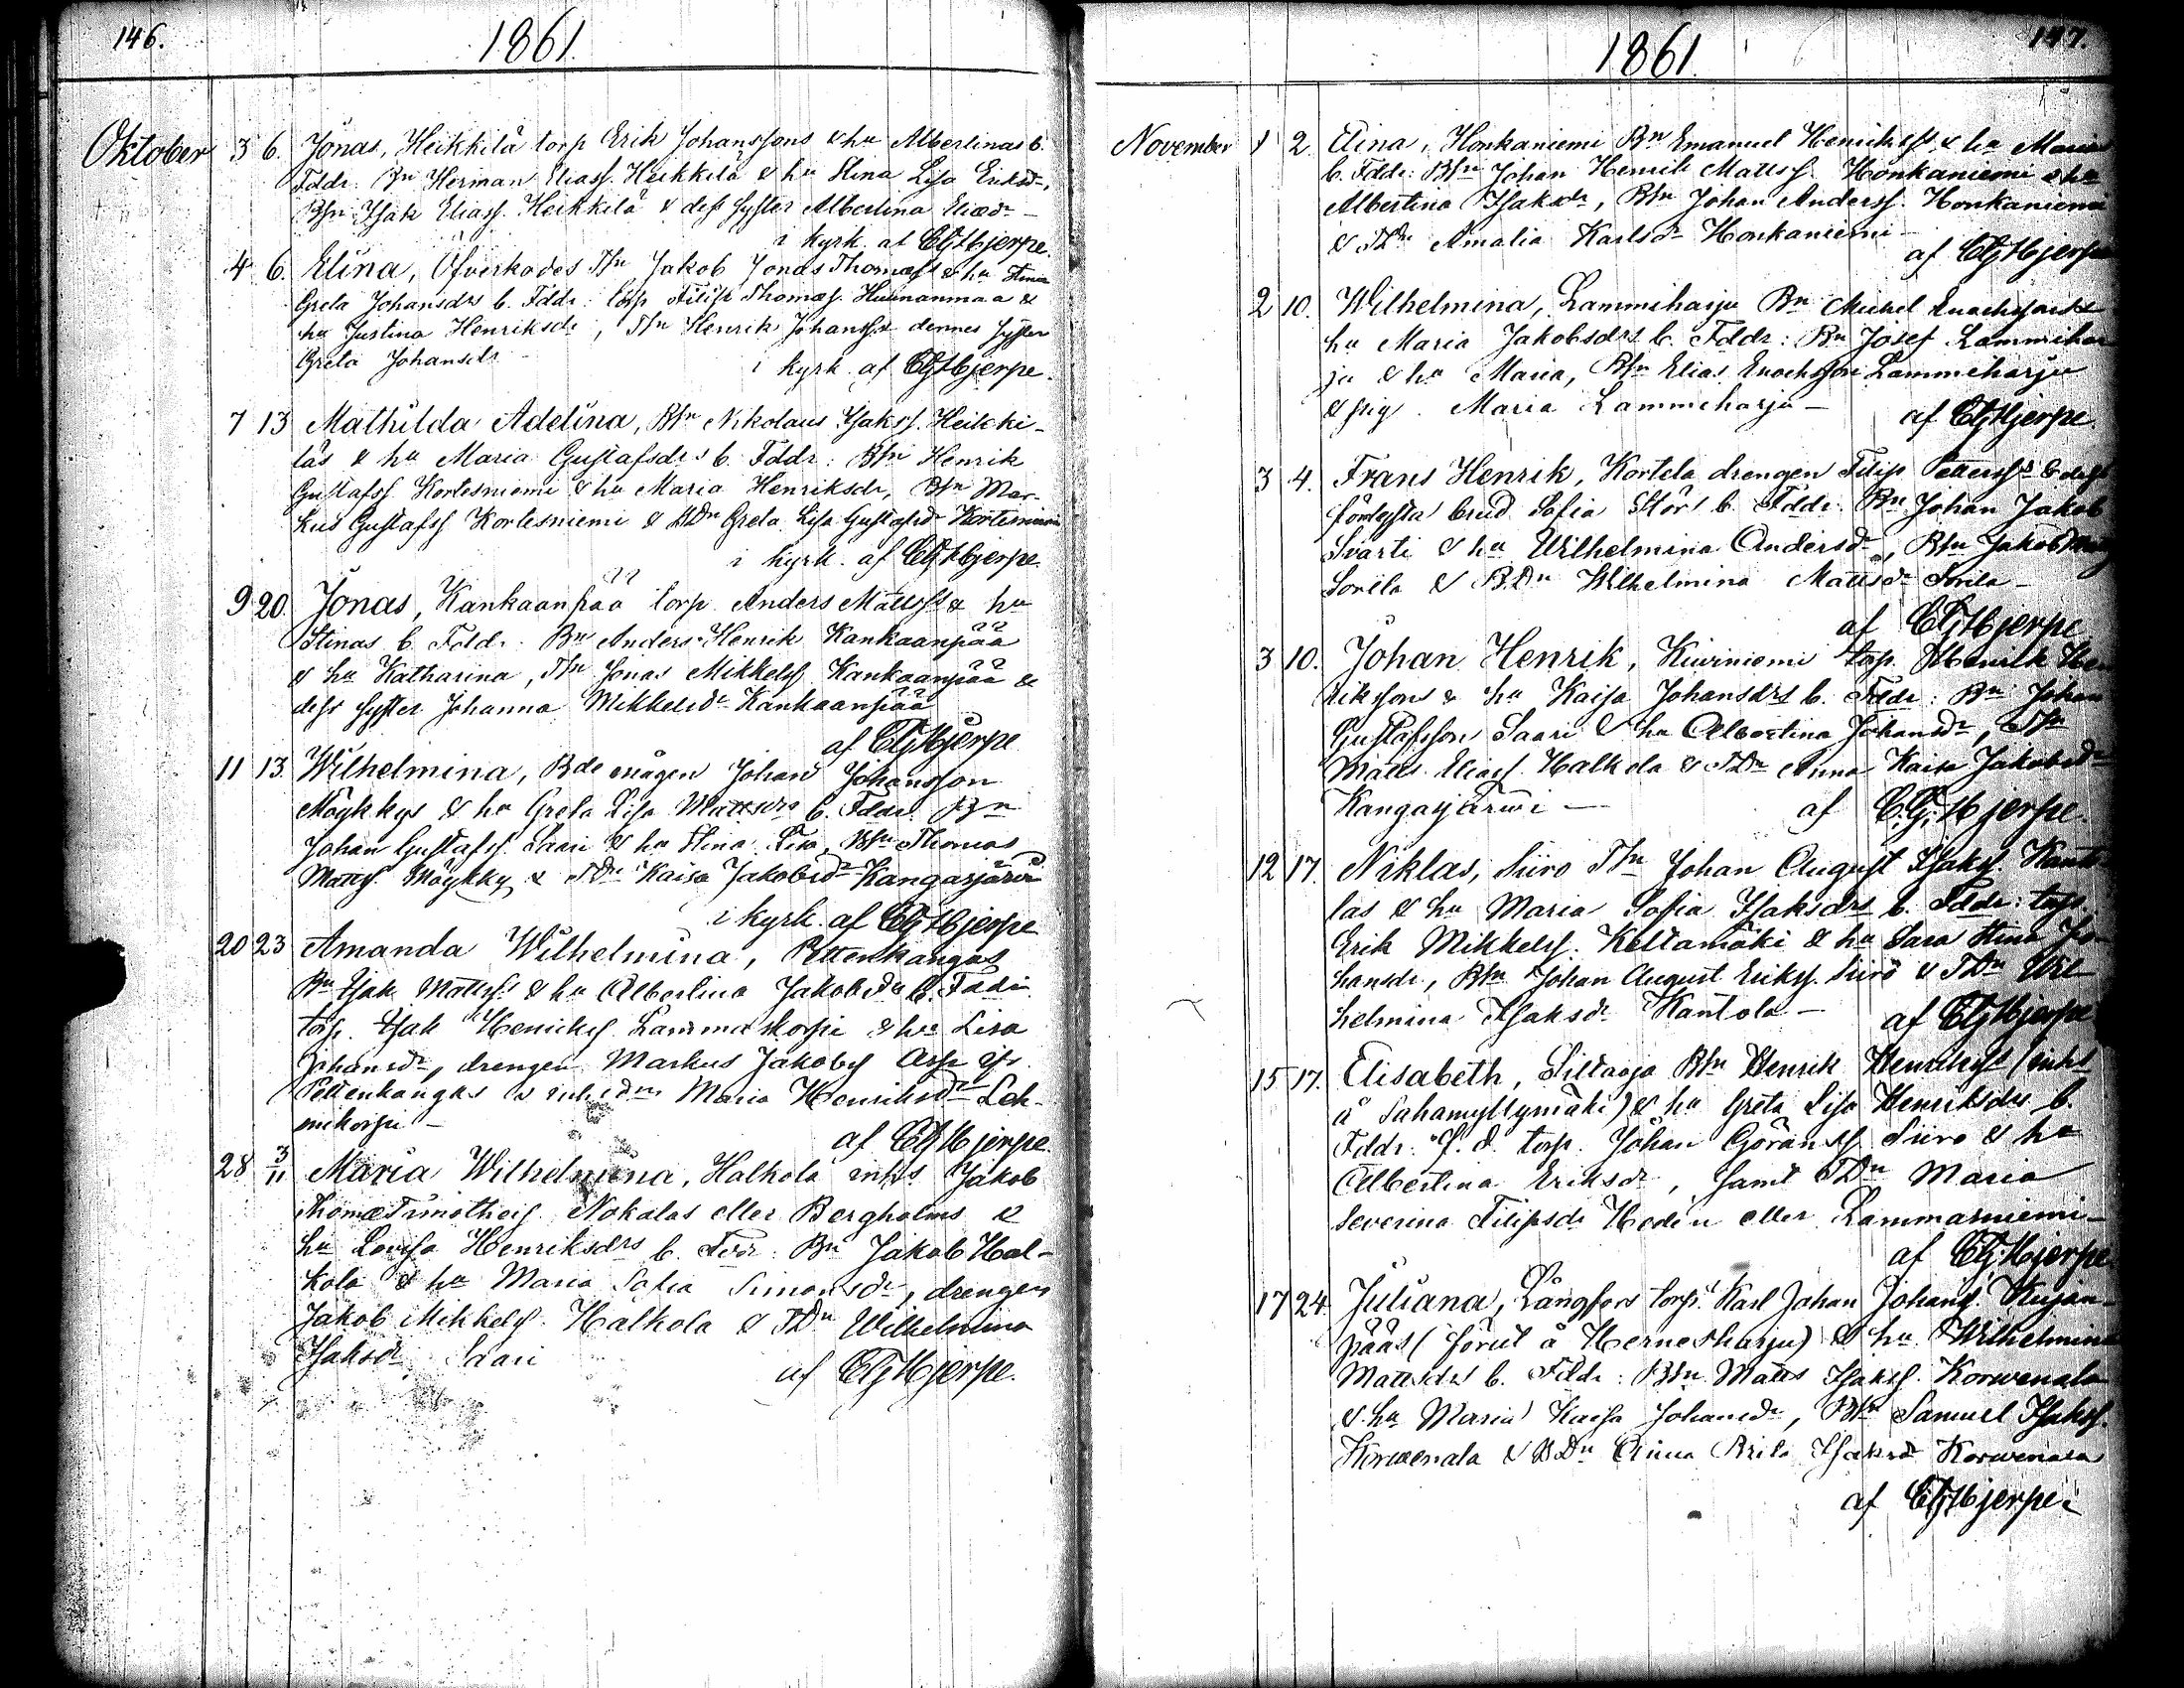 146.
1861.
Oktober 3 6. Jonas, Heikkilä torp Erik Johanssons & hu Albertinas b.
Fddr. Bn Herman Eliass. Heikkilä & hu Stina Lisa Eriksdr,
Bsn Isak Eliass. Heikkilä & dess syster Albertina Eliædr —
i kyrk. af CGHjerpe.
4 6. Elina, Öfverkados Tsn Jakob Jonas Thomæss & hu Stina
Greta Johansdrs b. Fddr: torp Filip Thomæs. Huunanmaa &
hu Justina Henriksdr, Tsn Henrik Johanss & dennes syster
Greta Johansdr
i kyrk. af CGHjerpe.
7 13 Mathilda Adelina, Bsn Nikolaus Isakss. Heikki-
läs & hu Maria Gustafsdrs b. Fddr: Bsn Henrik
Gustafss Kortesniemi & hu Maria Henriksdr, Bsn Mar-
kus Gustafss Kortesniemi & BDn Greta Lisa Gustafsdr Kortesniemi
i kyrk. af CGHjerpe.
9 20. Jonas, Kankaanpää torp. Anders Mattss & hu
Stinas b. Fddr. Bn Anders Henrik Kankaanpää
& hu Katharina, Tsn Jonas Mikkelss Kankaanpää &
dess syster Johanna Mikkelsdr Kankaanpää
af CGHjerpe
11 13. Wilhelmina, Bde mågen Johan Johansson
Möykkys & hu Greta Lisa Mattsdrs b. Fddr. Bn
Johan Gustafss. Saari & hu Stina Lisa, Bsn Thomas
Mattss. Möykky & TDn Kaisa Jakobsdr Kangasjärvi
i kyrk. af CGHjerpe
20 23 Amanda Wilhelmina, Pettenkangas
Bn Isak Mattss & hu Albertina Jakobsdrs b. Fddr.
torp. Isak Henrikss Lammaskorpi & hu Lisa
Johansdr, drengen Markus Jakobss Asp
Pettenkangas & Maria Henriksdr Leh-
mikorpi —
af CGHjerpe.
28 3/11 Maria Wilhelmina, Halkola inhs Jakob
Thomæ Timotheiss. Nokalas eller Bergholms &
hu Lovisa Henriksdrs b. Fddr: Bn Jakob Hal-
kola & hu Maria Sofia Simonsdr, drengen
Jakob Mikkelss Halkola & TDn Wilhelmina
Isaksdr Saari
af CGHjerpe.
147.
1861.
November 1 2. Elina, Honkaniemi Bn Emanuel Henrikss & hu Marias
b. Fddr: Bsn Johan Henrik Mattss. Honkaniemi & hu
Albertina Isaksdr, Bsn Johan Anderss. Honkaniemi
& TDn Amalia Karlsdr Honkaniemi —
af CGHjerpe
2 10. Wilhelmina, Lammiharju Bn Michel Enochssons &
hu Maria Jakobsdrs b. Fddr: Bn Josef Lammihar
ju & hu Maria, Bsn Elias Enochsson Lammiharju
& pig. Maria Lammiharju —
af CGHjerpe.
3 4. Frans Henrik, Kortela drengen Filip Petterss & dess
förlofsta brud Sofia Stör b. Fddr. Bn Johan Jakob
Svarti & hu Wilhelmina Andersdr, Bsn Jakob
Sorila & BDn Wilhelmina Mattsdr Sorila —
af CGHjerpe
3 10. Johan Henrik, Kiviniemi torp. Henrik Hen
rikssons & hu Kaisa Johansdrs b. Fddr: Bn Johan
Gustafsson Saari & hu Albertina Johansdr, Tsn
Matts Eliass. Halkola & TDn Anna Kaisa Jakobsdr
Kangasjärwi —
af C.G.Hjerpe.
12 17. Niklas, Siiro Tsn Johan August Isakss. Kanto
las & hu Maria Sofia Isaksdrs b. Fddr: torp.
Erik Mikkelss. Keltamäki & hu Sara Stina Jo-
hansdr, Bsn Johan August Erikss. Siiro & TDn Wil
helmina Isaksdr Kantola —
af CGHjerpe
15 17. Elisabeth, Siltaoja Bsn Henrik Henrikss (inhs
å Sahamyllymäki) & hu Greta Lisa Henriksdrs b.
Fddr: f. d. torp. Johan Göranss Siiro & hu
Albertina Eriksdr, samt TDn Maria
Severina Filipsdr Hedén eller Lammasniemi —
af CGHjerpe
17 24. Juliana, Långfors torp. Karl Johan Johanss. Kujan-
pääs (förut å Hernesharju) & hu Wilhelmina
Mattsdrs b. Fddr: Bsn Matts Isakss. Korwenala
& hu Maria Kaisa Johansdr, Bsn Samuel Isakss.
Korwenala & BDn Anna Brita Isaksdr Korwenala
af CGHjerpe.